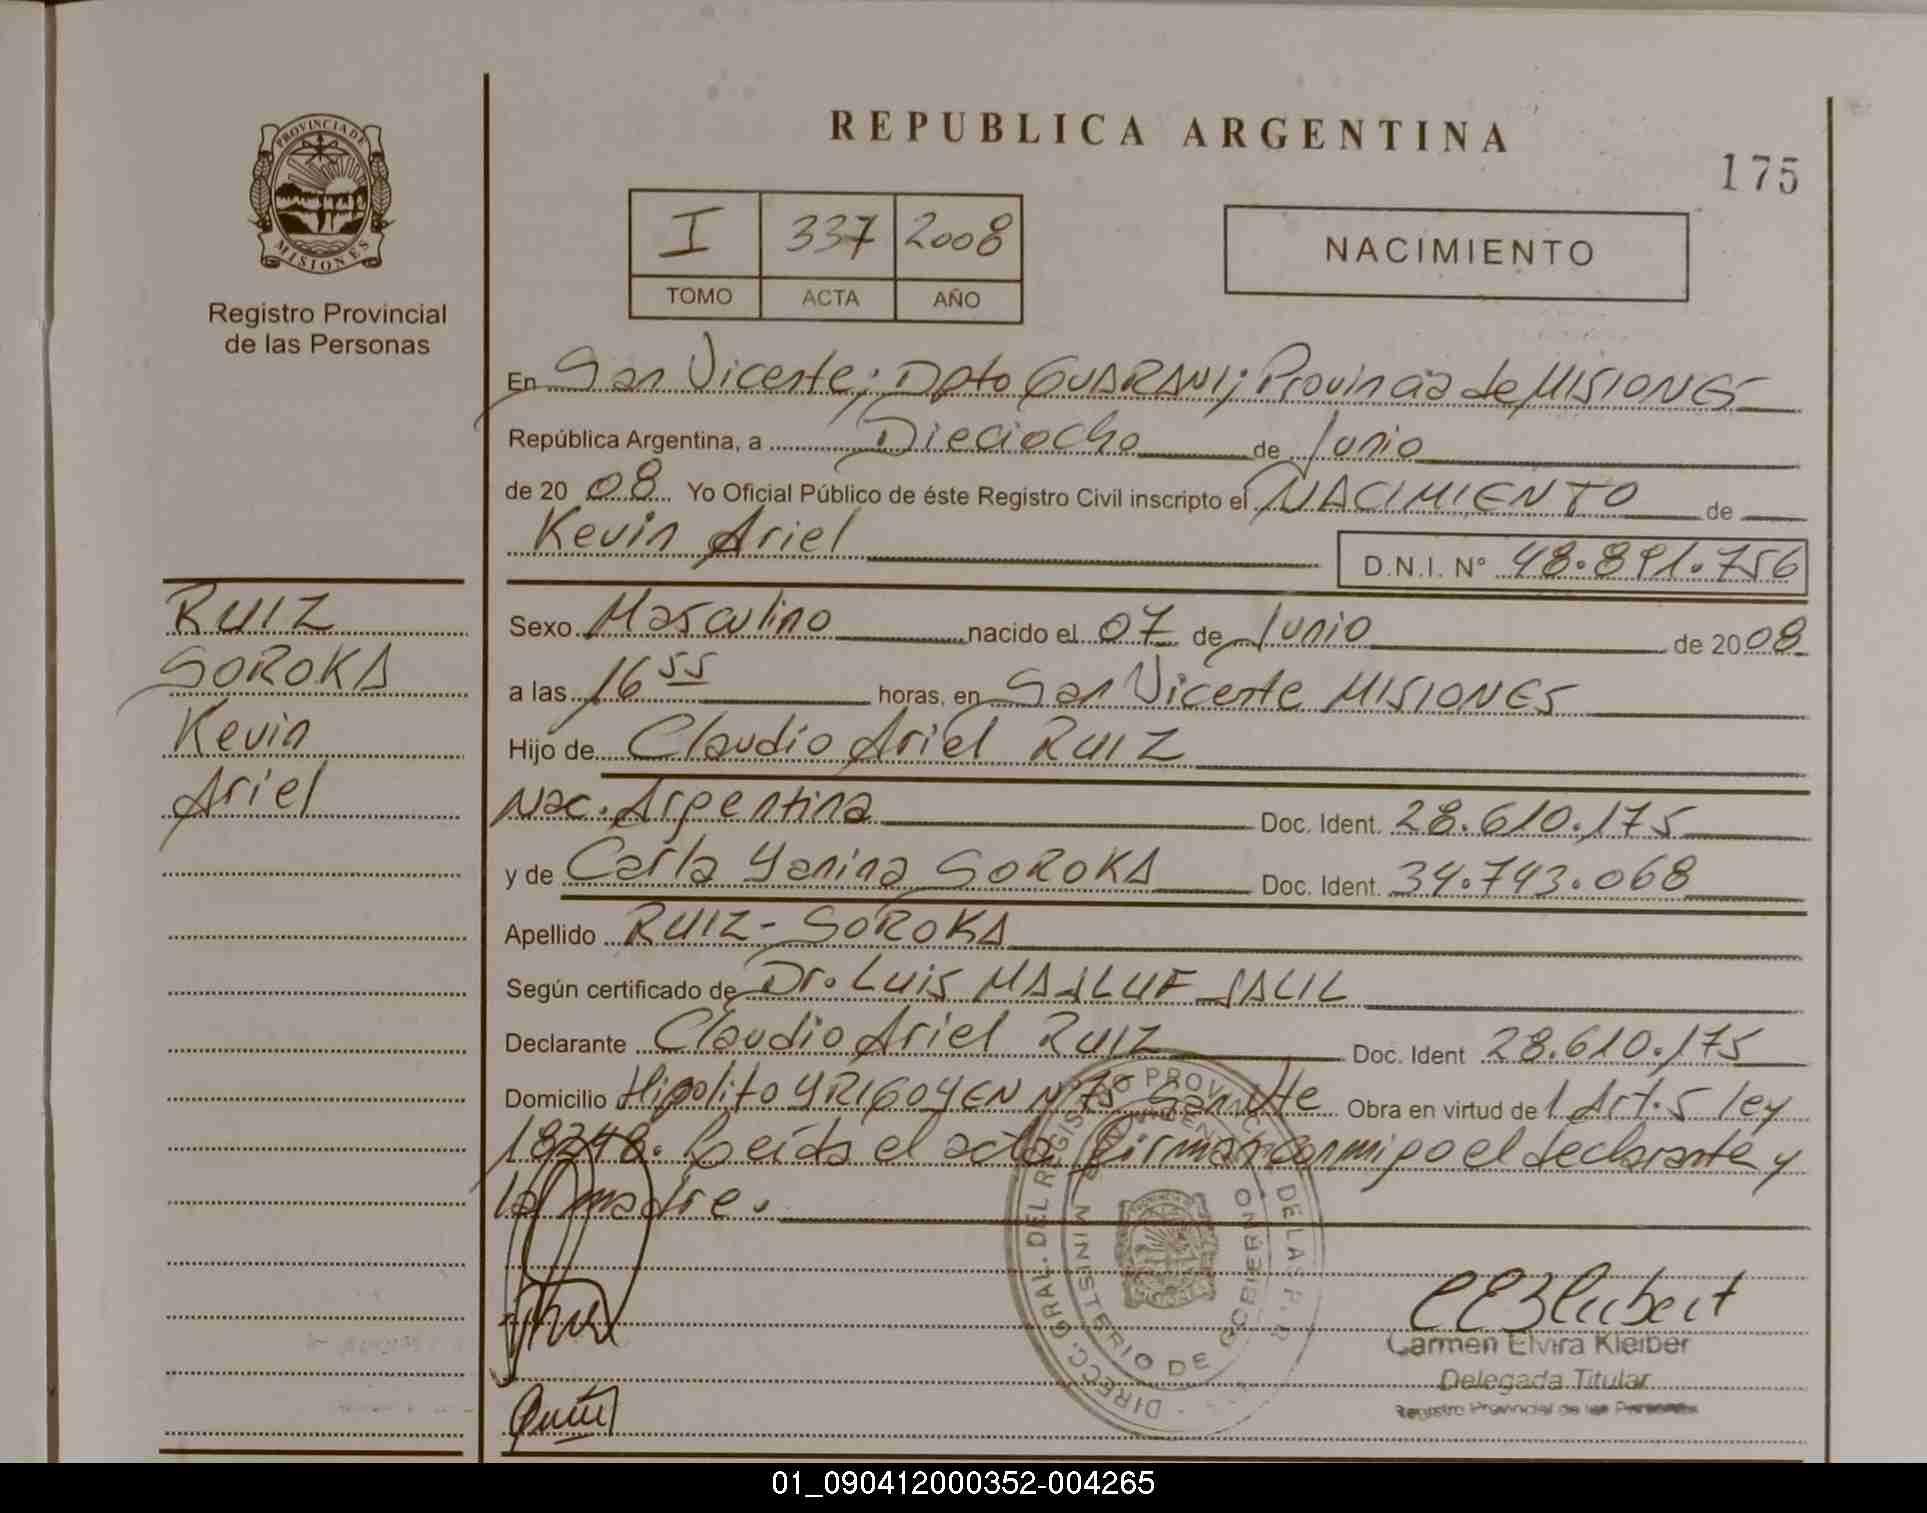 PROVINCIA DE
MISIONES
Registro Provincial
de las Personas
RUIZ
SOROKA
Kevin
Ariel
REPUBLICA ARGENTINA
175
I 337 2008
TOMO ACTA AÑO
NACIMIENTO
En San Vicente; Dpto GUARANI; Provincia de MISIONES
República Argentina, a Dieciocho de Junio
de 2008 Yo Oficial Público de éste Registro Civil inscripto el NACIMIENTO de
Kevin Ariel D.N.I. N° 48.891.756
Sexo Masculino nacido el 07 de Junio de 2008
a las 16 55 horas, en San Vicente MISIONES
Hijo de Claudio Ariel RUIZ
Nac. Argentina Doc. Ident. 28.610.175
y de Carla Yanina SOROKA Doc. Ident. 34.743.068
Apellido RUIZ - SOROKA
Según certificado de Dr. Luis MASLUF JALIL
Declarante Claudio Ariel RUIZ Doc. Ident 28.610.175
Domicilio Hipolito YRIGOYEN N° 75 San Vte Obra en virtud de 1 Art. 5 ley
18248. Leída el acta firman conmigo el declarante y
la madre.
DIRECC. GRAL. DEL REGISTRO PROVINCIAL DE LAS P.
MINISTERIO DE GOBIERNO
Carmen Elvira Kleiber
Delegada Titular
Registro Provincial de las Personas
01_090412000352-004265